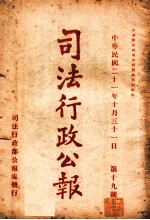 中華民國二十一年十月三十一日
第十九號
司法行政公報
司法行政部公報處發行